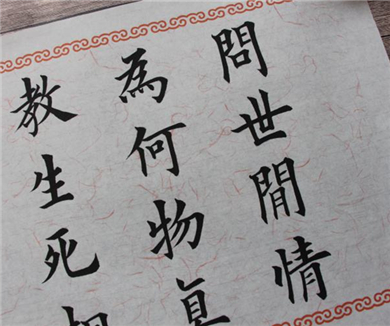 問世間情
為何物直
教生死相